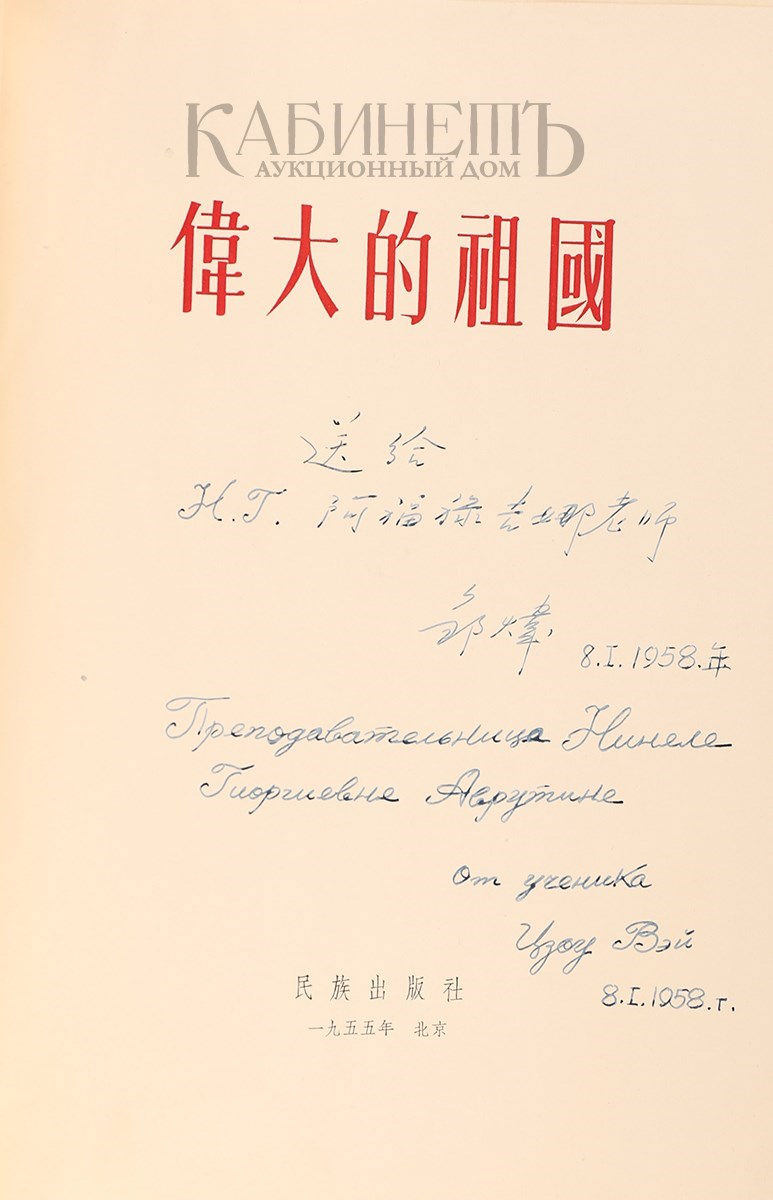 КАБИНЕТЪ
АУКЦИОННЫЙ ДОМ
偉大的祖國
送给
Н.Г. 阿福禄吉娜老师
邹煒
8.I.1958.年
Преподавательнице Нинеле
Гиоргиевне Аврутине
От ученика
Цзоу Вэй
8.I.1958.г.
民族出版社
一九五五年 北京